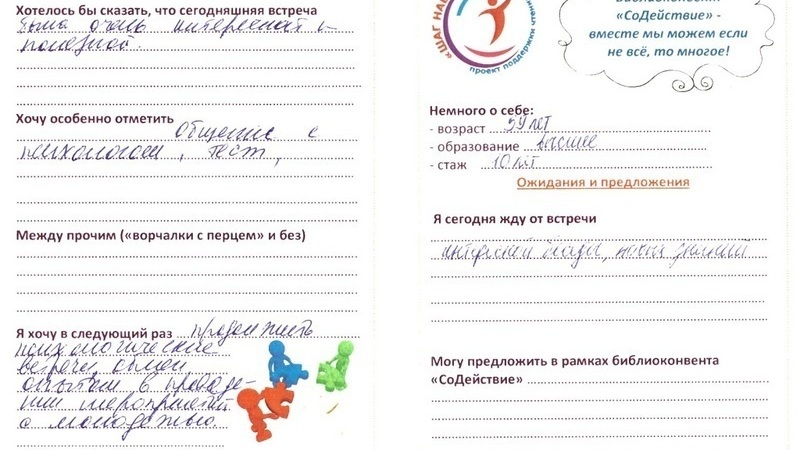 Хотелось бы сказать, что сегодняшняя встреча
была очень интересной и
полезной.
Хочу особенно отметить
Общение с
психологом, тест,
Между прочим («ворчалки с перцем» и без)
Я хочу в следующий раз продолжить
психологические
встречи, обмен
опытом в проведе-
нии мероприятий
с молодежью.
« ШАГ НА
проект поддержки чтения
Библиоконвент
«СоДействие» -
вместе мы можем если
не всё, то многое!
Немного о себе:
- возраст 59 лет
- образование высшее
- стаж 10 лет
Ожидания и предложения
Я сегодня жду от встречи
интересной беседы, новых знаний
Могу предложить в рамках библиоконвента
«СоДействие»